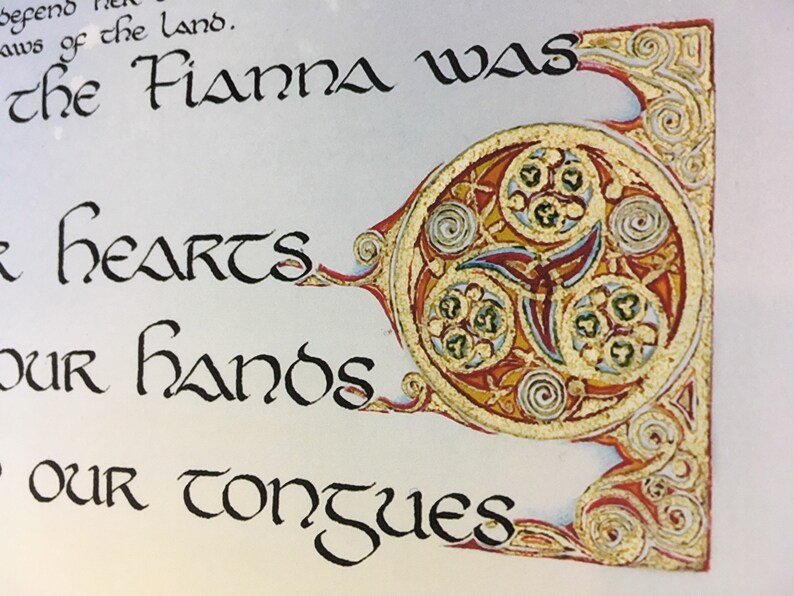 defend her
laws of the land.
the Fianna was
hearts
our hands
our tongues